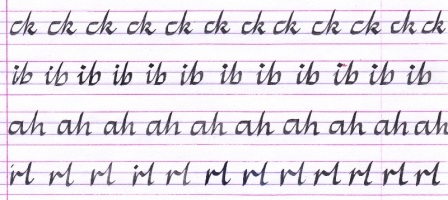 ck ck ck ck ck ck ck ck ck ck ck ck
ib ib ib ib ib ib ib ib ib ib ib ib
ah ah ah ah ah ah ah ah ah ah
rl rl rl rl rl rl rl rl rl rl rl rl